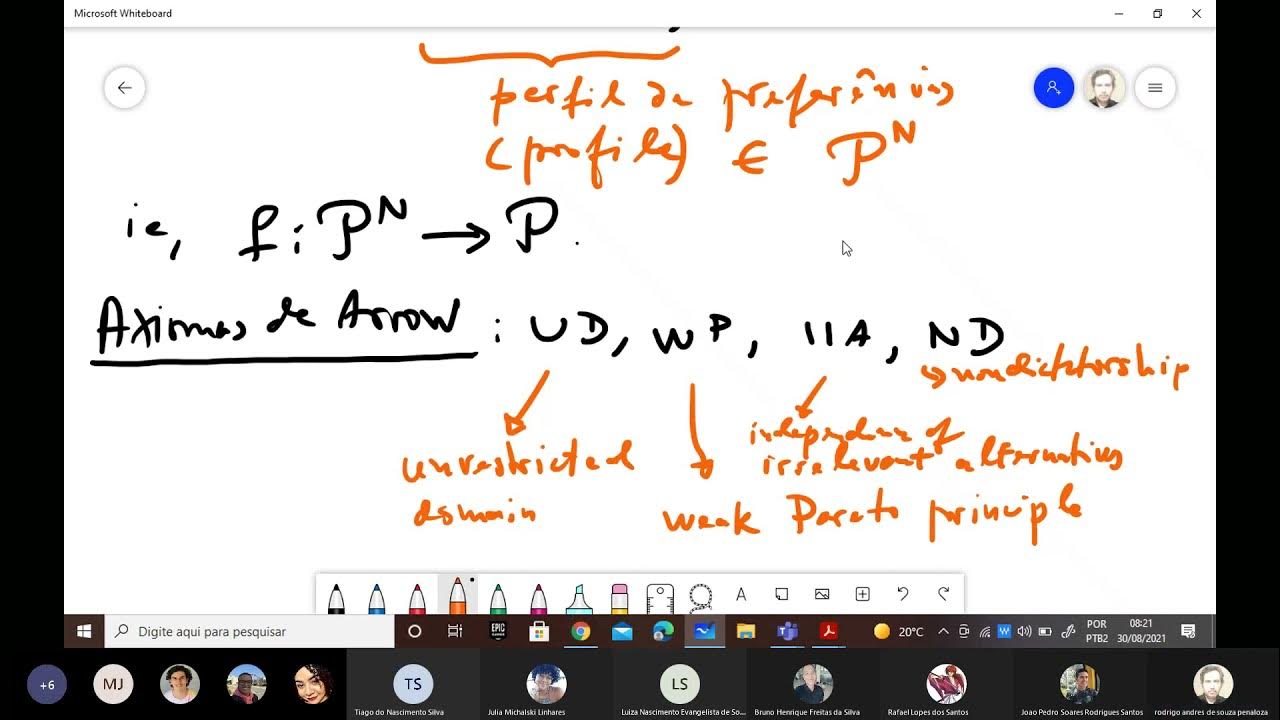 Microsoft Whiteboard
perfil de preferências
(profile) ∈ P^N
ie, f: P^N → P.
Axiomas de Arrow : UD, WP, IIA, ND
→ nondictatorship
independence of
irrelevant alternatives
unrestricted
domain
weak Pareto principle
A
Digite aqui para pesquisar
EPIC
GAMES
20°C
POR
PTB2
08:21
30/08/2021
+6
MJ
TS
Tiago do Nascimento Silva
Julia Michalski Linhares
LS
Luiza Nascimento Evangelista de So...
Bruno Henrique Freitas da Silva
Rafael Lopes dos Santos
Joao Pedro Soares Rodrigues Santos
rodrigo andres de souza penaloza